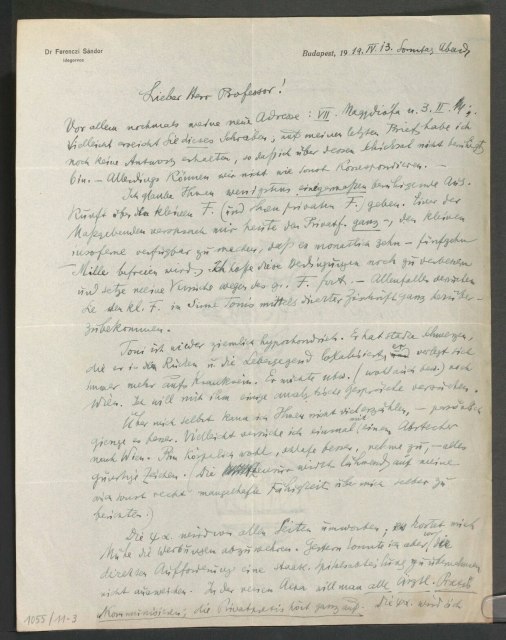 Dr Ferenczi Sándor
idegorvos
Budapest, 19 19. IV 13. Sonntag Abends
Lieber Herr Professor!
Vor allem nochmals meine neue Adresse: VII. Nagydiófa u. 3. II.
Vielleicht erreicht Sie dieses Schreiben; auf meinen letzten Brief habe ich
noch keine Antwort erhalten, so daß ich über dessen Schicksal nicht beruhigt
bin. – Allerdings können wir nicht wie sonst Korrespondieren. –
Ich glaube Ihnen wenigstens einigermaßen beruhigende Aus-
kunft über den kleinen F. (und Ihren privaten F.) geben. Einer der
Maßgebenden versprach mir heute den Privatf. ganz –, den kleinen
insoferne verfügbar zu machen, daß es monatlich zehn – fünfzehn
Mille befreien wird. Ich hoffe diese Bedingungen noch zu verbessern
und setze meine Versuche wegen des gr. F. fort. – Allenfalls
Sie den kl. F. in Tonis mittels Zuschrift ganz
zubekommen.
Toni ist wieder ziemlich hypochondrisch. Er hat starke Schmerzen,
die er in den Rücken u die Lebergegend lokalisiert, und er verlegt sich
immer mehr aufs Kranksein. Er möchte nach
Wien. Ich will mit ihm einige analytische Gespräche versuchen.
Über mich selbst kann ich Ihnen nicht viel erzählen, – persönlich
gienge es besser. Vielleicht versuche ich einmal einen Abstecher
nach Wien. Bin körperlich wohl, schlafe besser, nehme zu, – alles
günstige Zeichen. (Die
auch sonst recht mangelhafte Fähigkeit über mich selber zu
berichten.)
Die ψα. wird von allen Seiten umworben; es kostet mich
Mühe die Werbungen abzuwehren. Gestern konnte ich aber der
direkten Aufforderung eine staatl. Spitalsabteilung zu übernehmen
nicht ausweichen. In der neuen Aera will man alle ärztl. Praxis
Kommunisieren, die Privatpraxis hört ganz auf. Die ψα. wird sich
1055/11-3